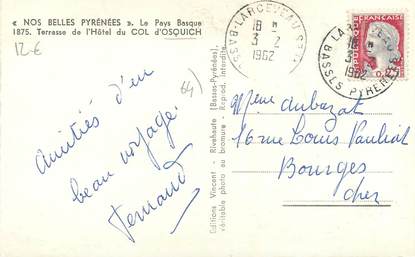 « NOS BELLES PYRÉNÉES ». Le Pays Basque
1875. Terrasse de l'Hôtel du COL d'OSQUICH
12€
64
amitiés d'un
beau voyage.
Fernand
Editions Vincent - Rivehaute (Basses-Pyrénées)
véritable photo au bromure - Reprod. interdite
LARCEVEAU
18 H
3 - 2
1962
BASSES PYRENEES
0,25
Mme Aubazat
16 rue Louis Pauliat
Bourges
Cher